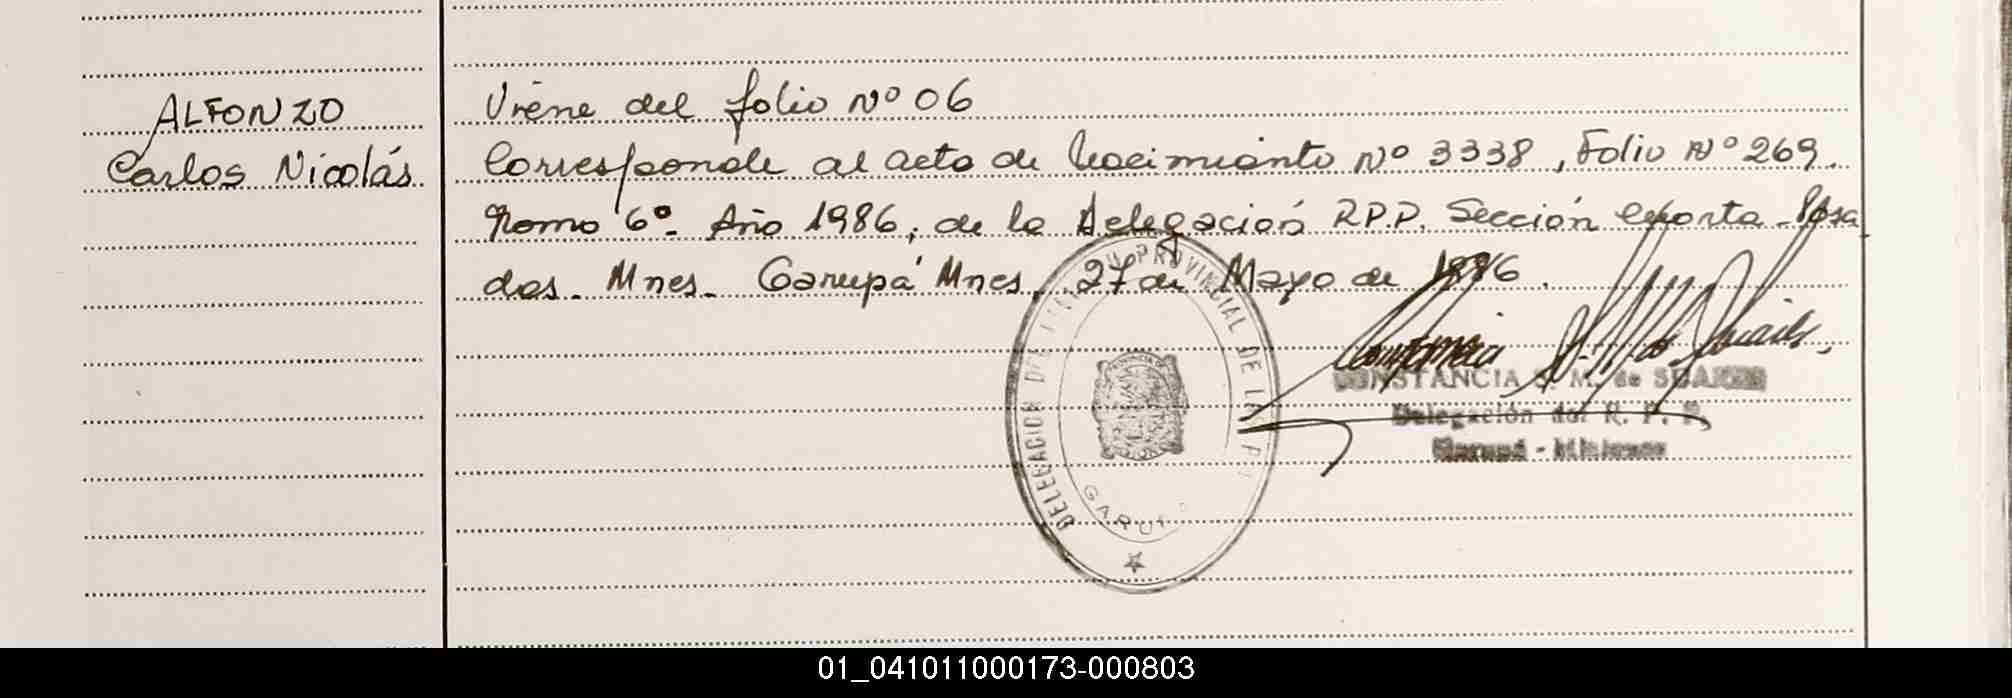 ALFONZO
Carlos Nicolás
Viene del folio Nº 06
Corresponde al acta de Nacimiento Nº 3338, Folio Nº 269.
Tomo 6º. Año 1986, de la Delegación R.P.P. Sección Cuarta - Posa
das. Mnes. Garupá Mnes, 27 de Mayo de 1986.
CONSTANCIA S. M. de SUAREZ
Delegación del R. P. P.
Garupá - Misiones
DELEGACION DEL PROVINCIAL DE LAS P
GARUPA
01_041011000173-000803